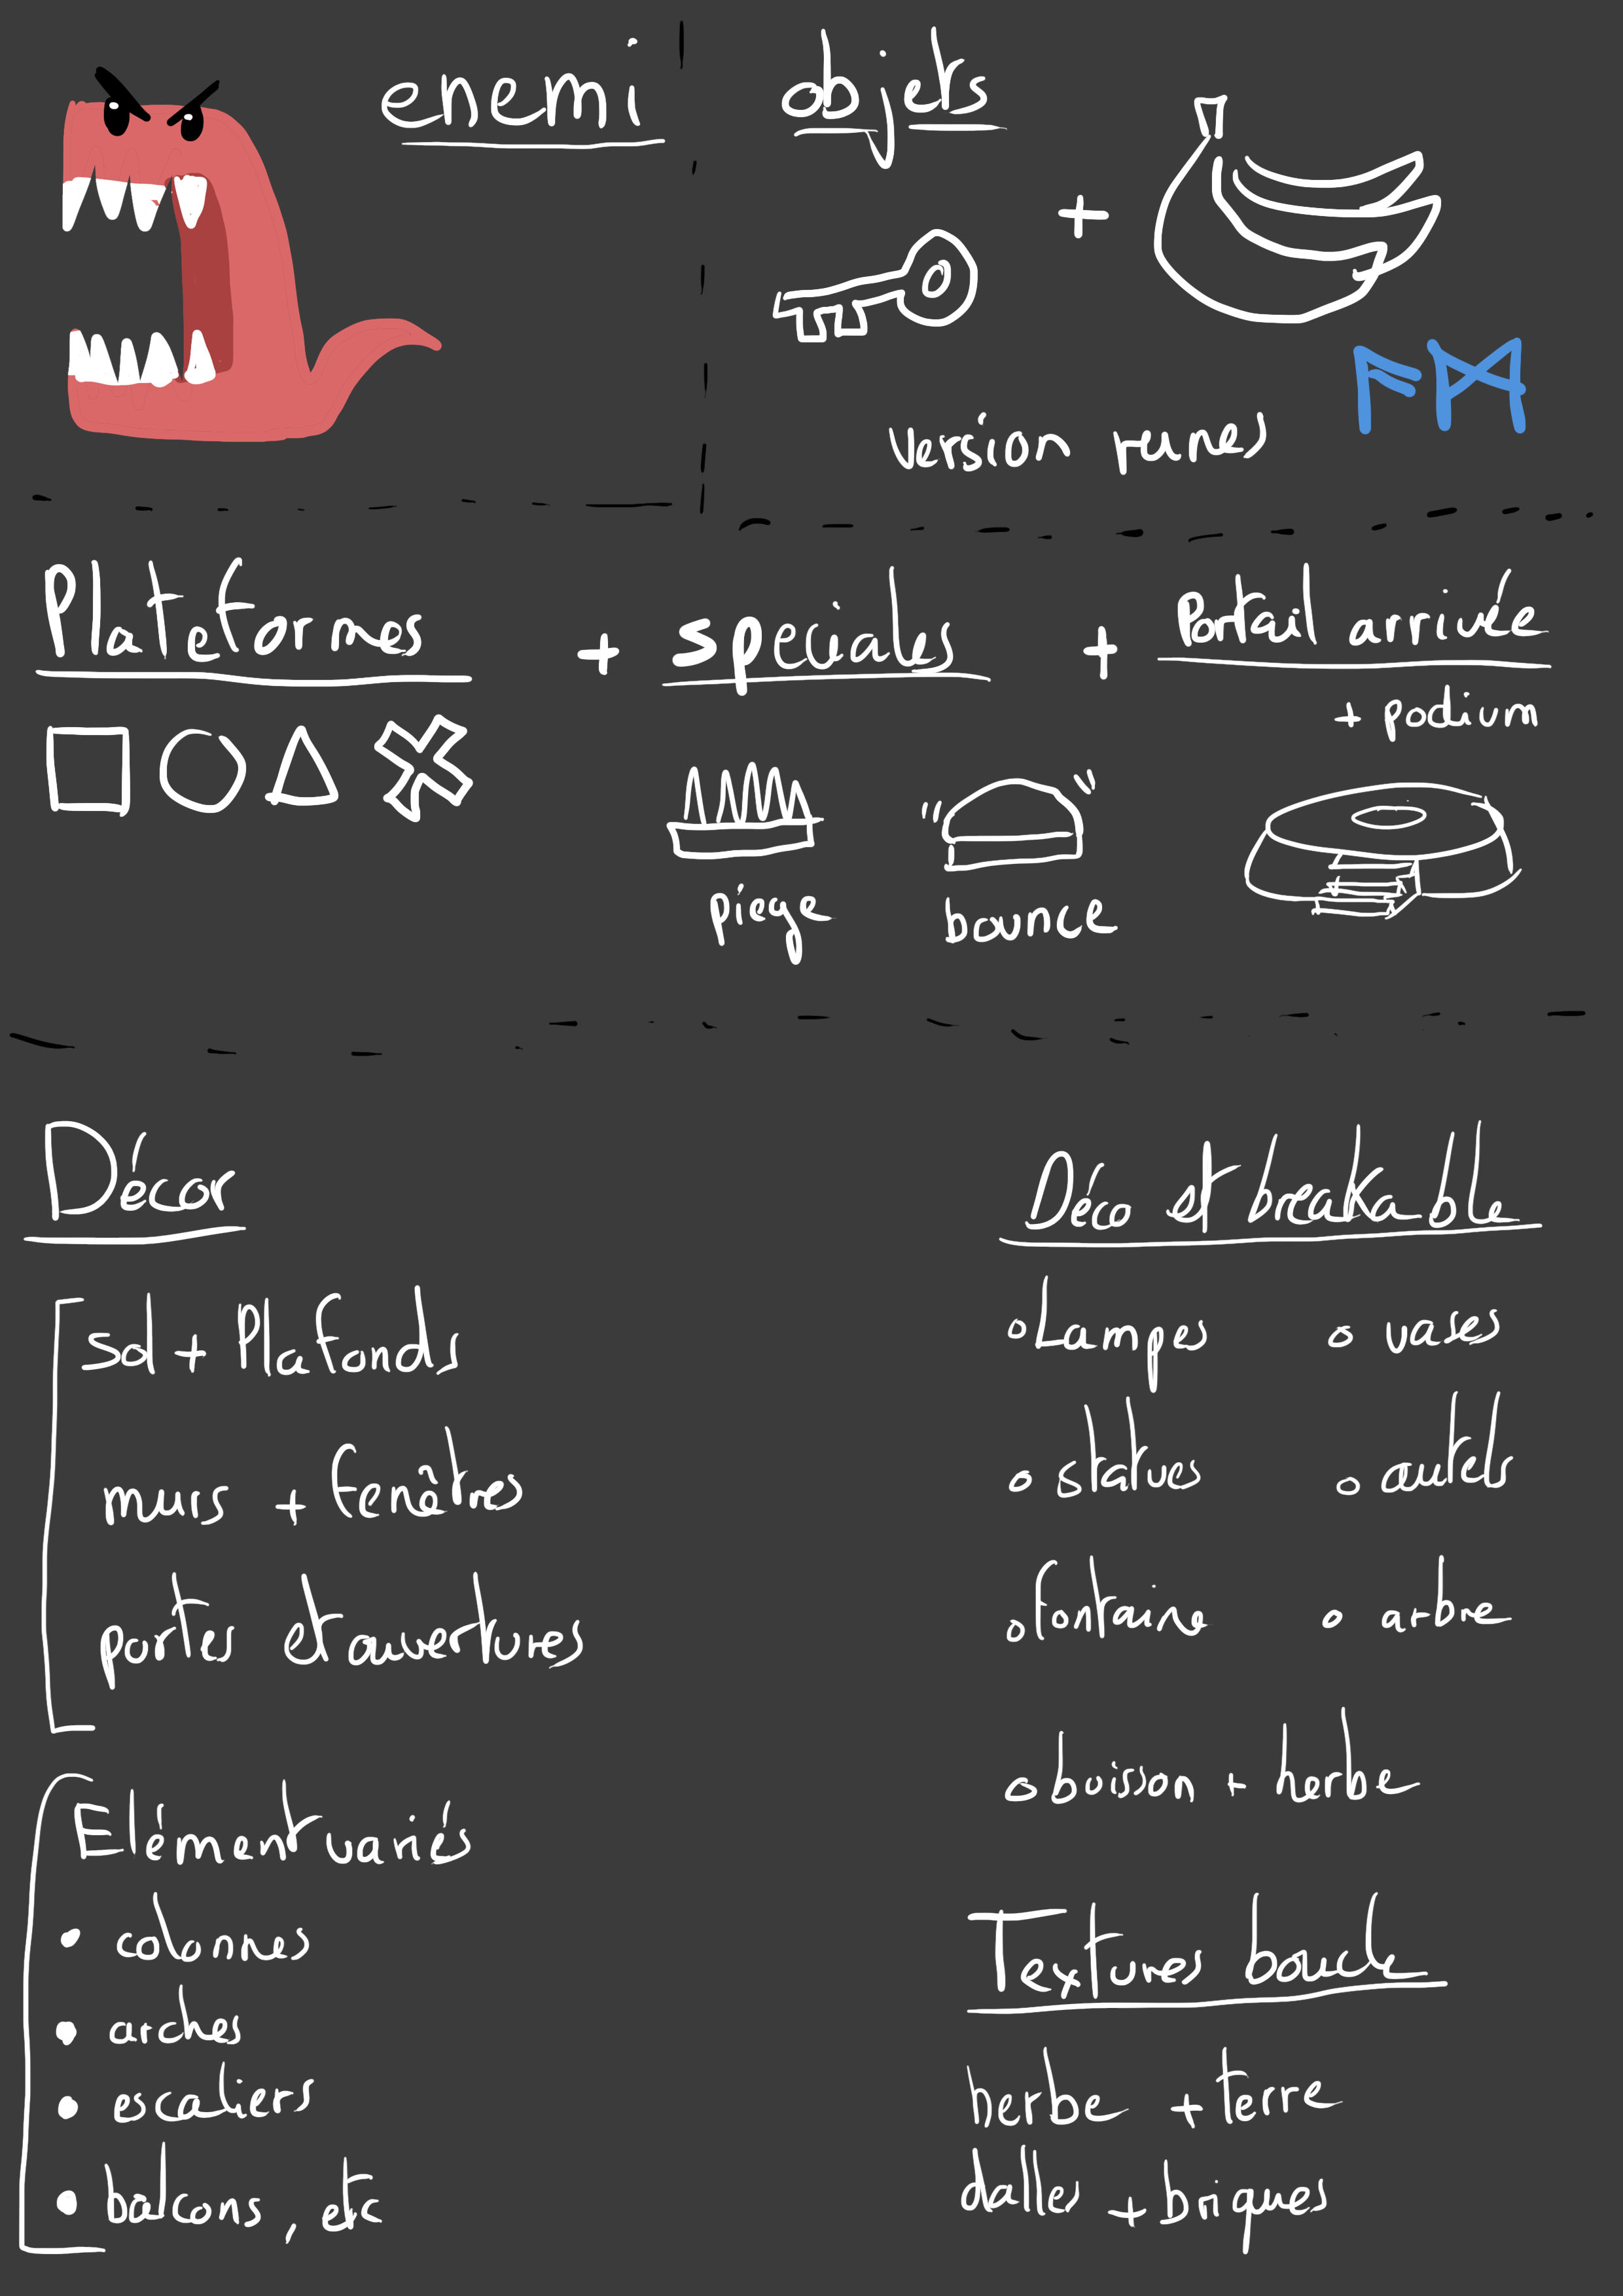 enemi
objets
+
version runes
ᚨᛗ
Plateformes + speciales + Portail arrivée
+ podium
piège
bounce
Décor
sol + Plafonds
murs + fenêtres
portes et ouvertures
Elément variés
• colonnes
• arches
• escaliers
• balcons, etc
Déco et breakable
o lampes
o vases
o statues
o autels
o fontaine
o arbre
o boisson + herbe
Textures boucle
herbe + terre
dalles + briques